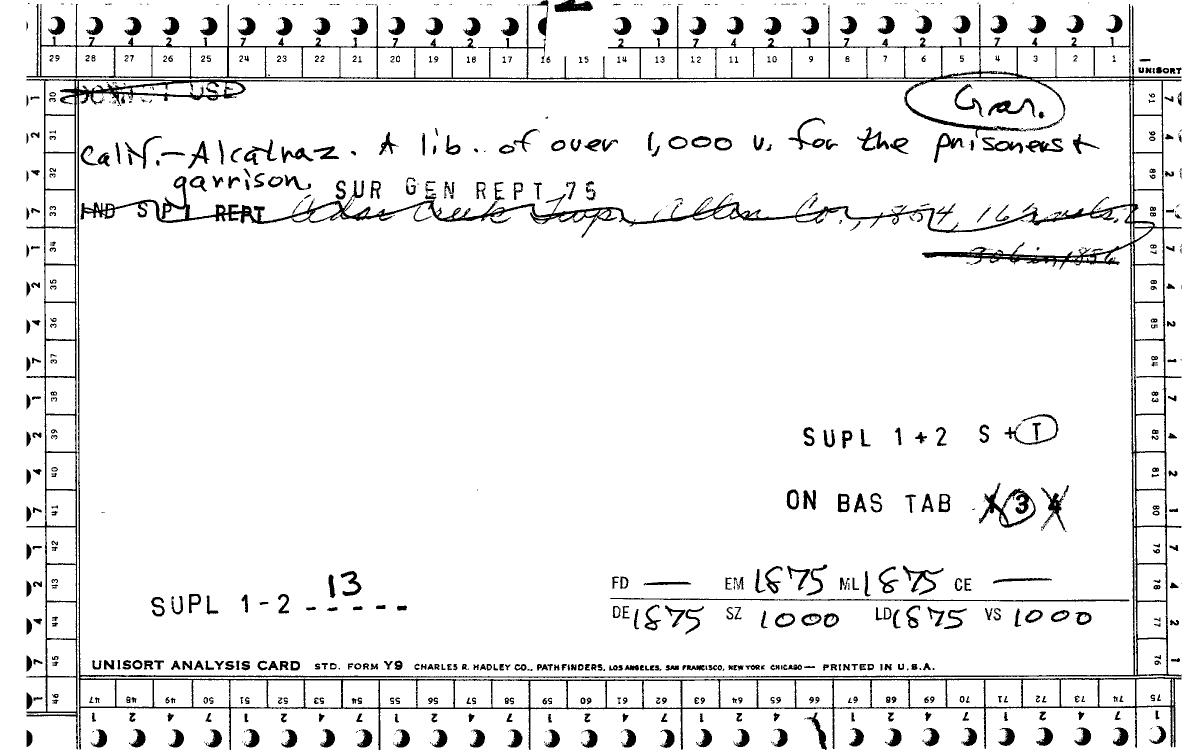 7 4 2 1 7 4 2 1 7 4 2 1 7 4 2 1 2 1 7 4 2 1 7 4 2 1 7 4 2 1
29 28 27 26 25 24 23 22 21 20 19 18 17 16 15 14 13 12 11 10 9 8 7 6 5 4 3 2 1
UNISORT
DO NOT USE
Gar.
Calif.-Alcatraz. A lib. of over 1,000 v. for the prisoners +
garrison. SUR GEN REPT 75
IND SPT REPT Cedar Creek Twp., Allen Co., 1854, 163 vols.;
306 in 1856
SUPL 1+2 S+T
ON BAS TAB 1 3 4
SUPL 1-2 13
FD — EM 1875 ML 1875 CE —
DE 1875 SZ 1000 LD 1875 VS 1000
UNISORT ANALYSIS CARD STD. FORM Y9 CHARLES R. HADLEY CO., PATHFINDERS, LOS ANGELES, SAN FRANCISCO, NEW YORK CHICAGO — PRINTED IN U.S.A.
30 31 32 33 34 35 36 37 38 39 40 41 42 43 44 45 46
47 48 49 50 51 52 53 54 55 56 57 58 59 60 61 62 63 64 65 66 67 68 69 70 71 72 73 74 75
91 90 89 88 87 86 85 84 83 82 81 80 79 78 77 76